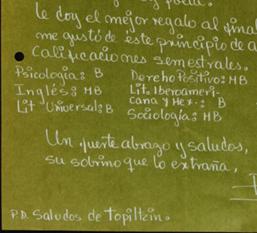 le doy el mejor regalo al final
me gustó de este principio de a
calificaciones semestrales.
Psicología: B Derecho Positivo: MB
Inglés: MB Lit. Iberoameri-
Lit Universal: B cana y Mex.: B
Sociología: MB
Un fuerte abrazo y saludos,
su sobrino que lo extraña,
P.D. Saludos de Topiltzin.